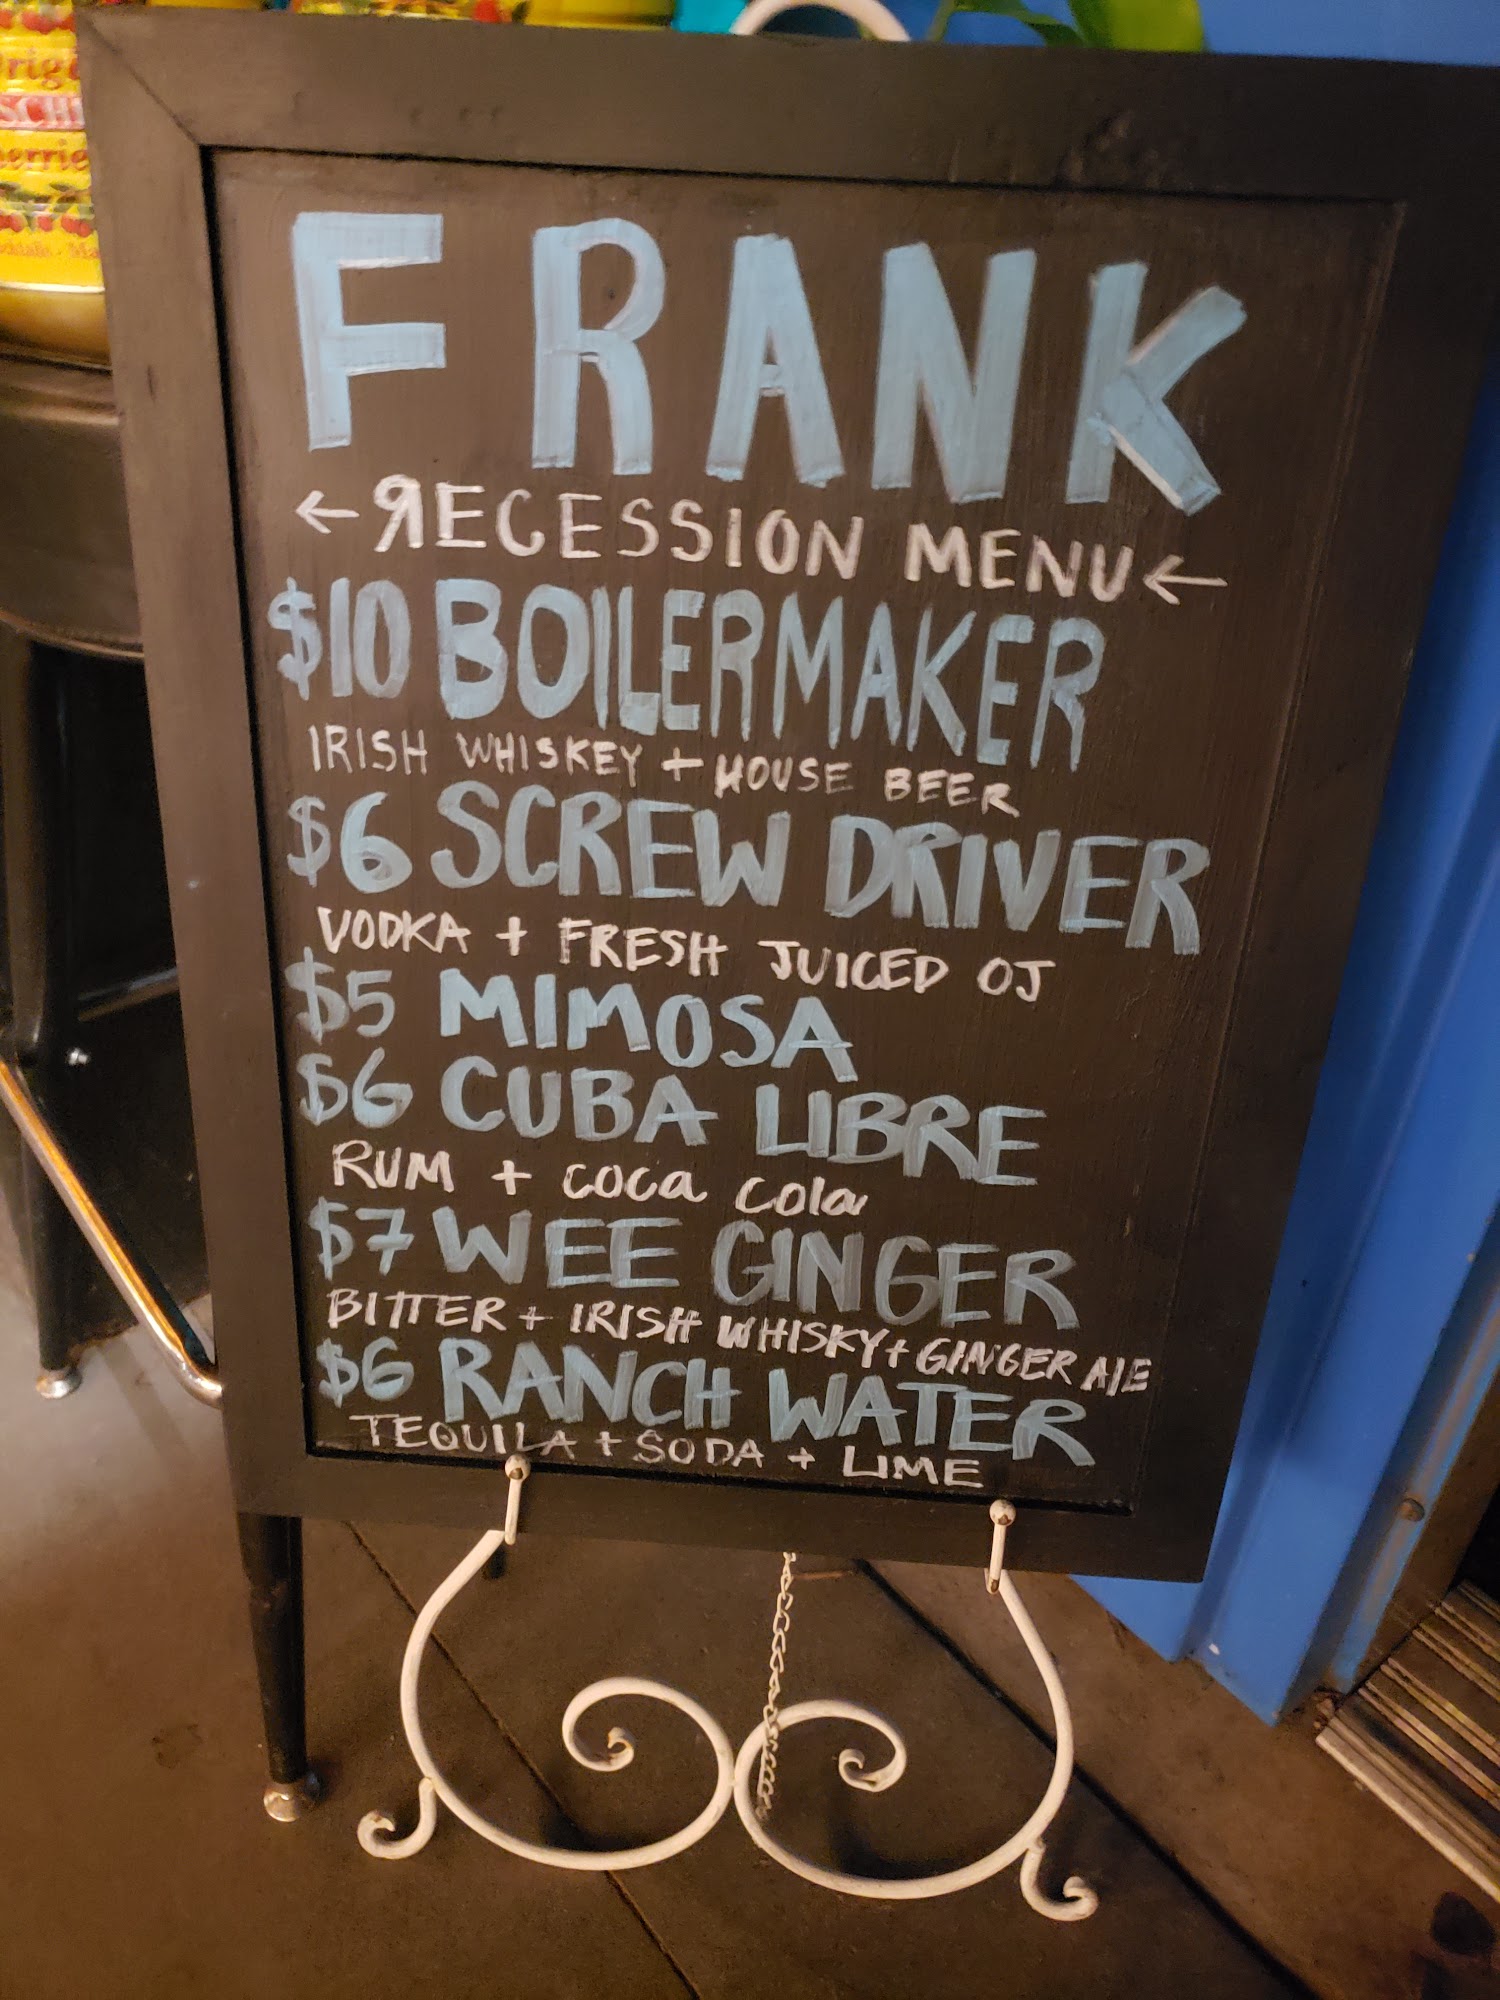 FRANK
←RECESSION MENU←
$10 BOILERMAKER
IRISH WHISKEY + HOUSE BEER
$6 SCREW DRIVER
VODKA + FRESH JUICED OJ
$5 MIMOSA
$6 CUBA LIBRE
RUM + COCA COLA
$7 WEE GINGER
BITTER + IRISH WHISKY + GINGER ALE
$6 RANCH WATER
TEQUILA + SODA + LIME